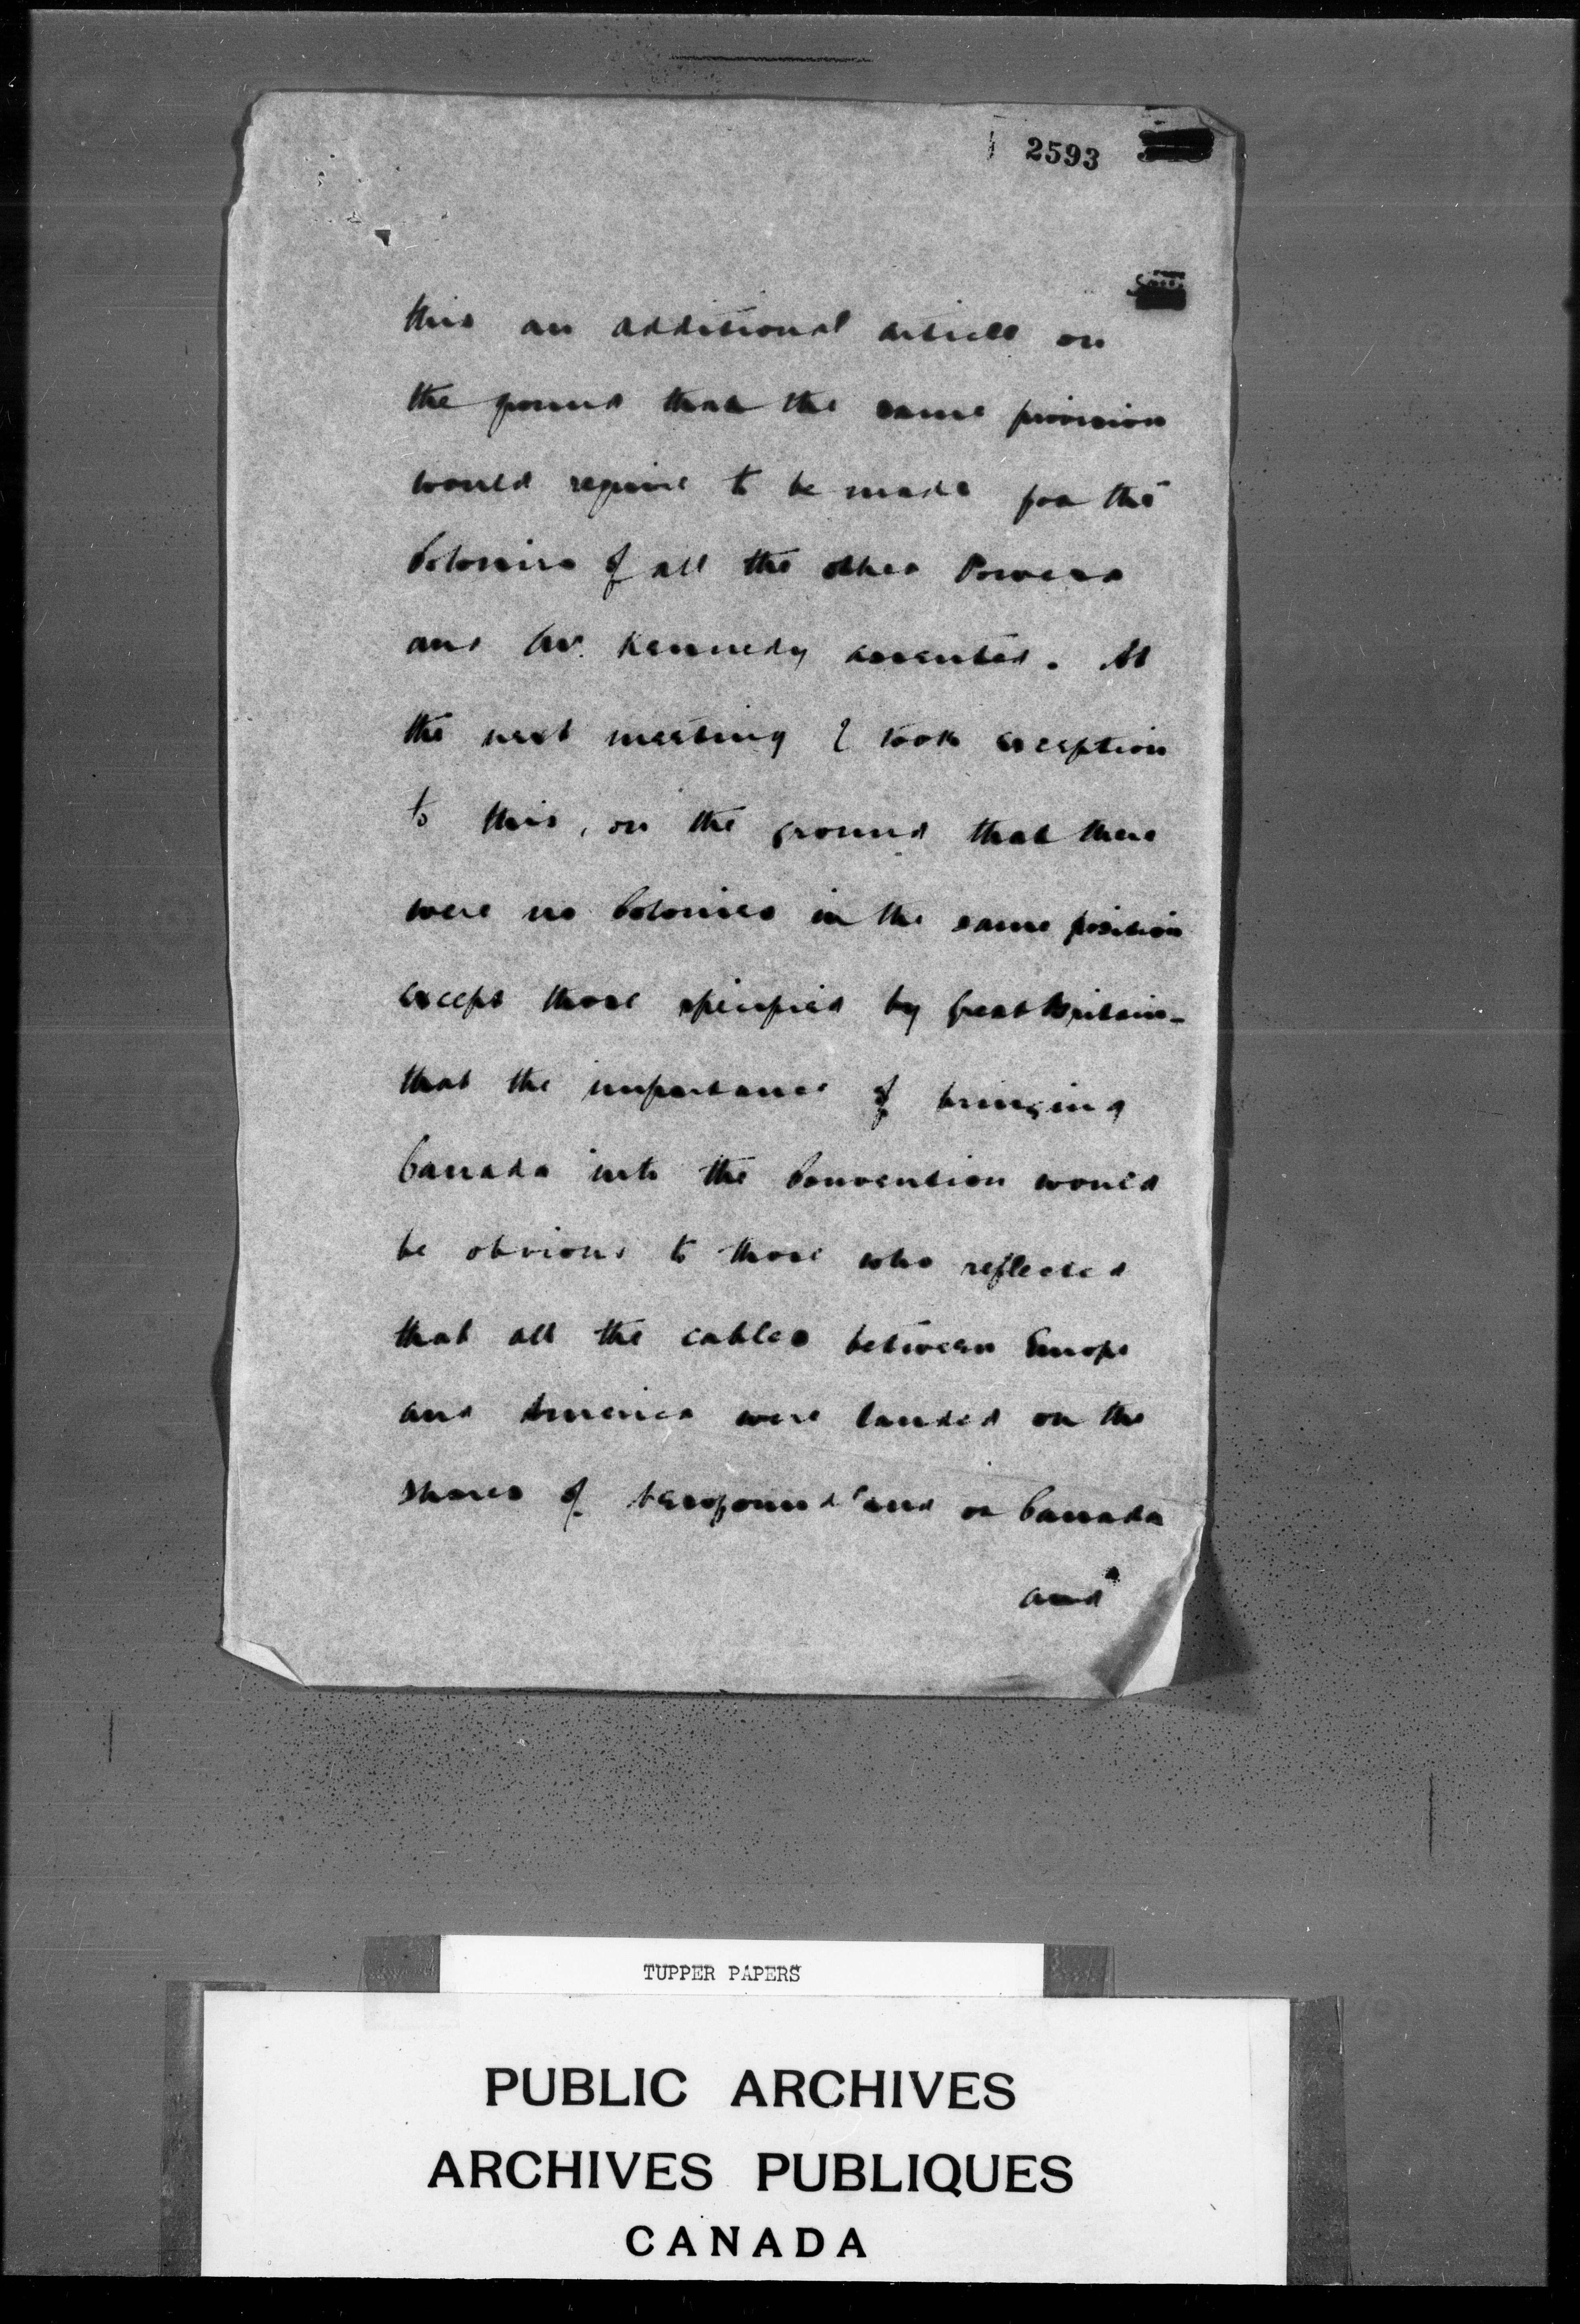 2593
this an additional article on
the ground that the same provision
would require to be made for the
Colonies of all the other Powers
and Mr. Kennedy assented. At
the next meeting I took exception
to this, on the ground that there
were no Colonies in the same position
except those specified by Great Britain -
that the importance of bringing
Canada into the Convention would
be obvious to those who reflected
that all the cables between Europe
and America were landed on the
shores of Newfoundland or Canada
and
TUPPER PAPERS
PUBLIC ARCHIVES
ARCHIVES PUBLIQUES
CANADA